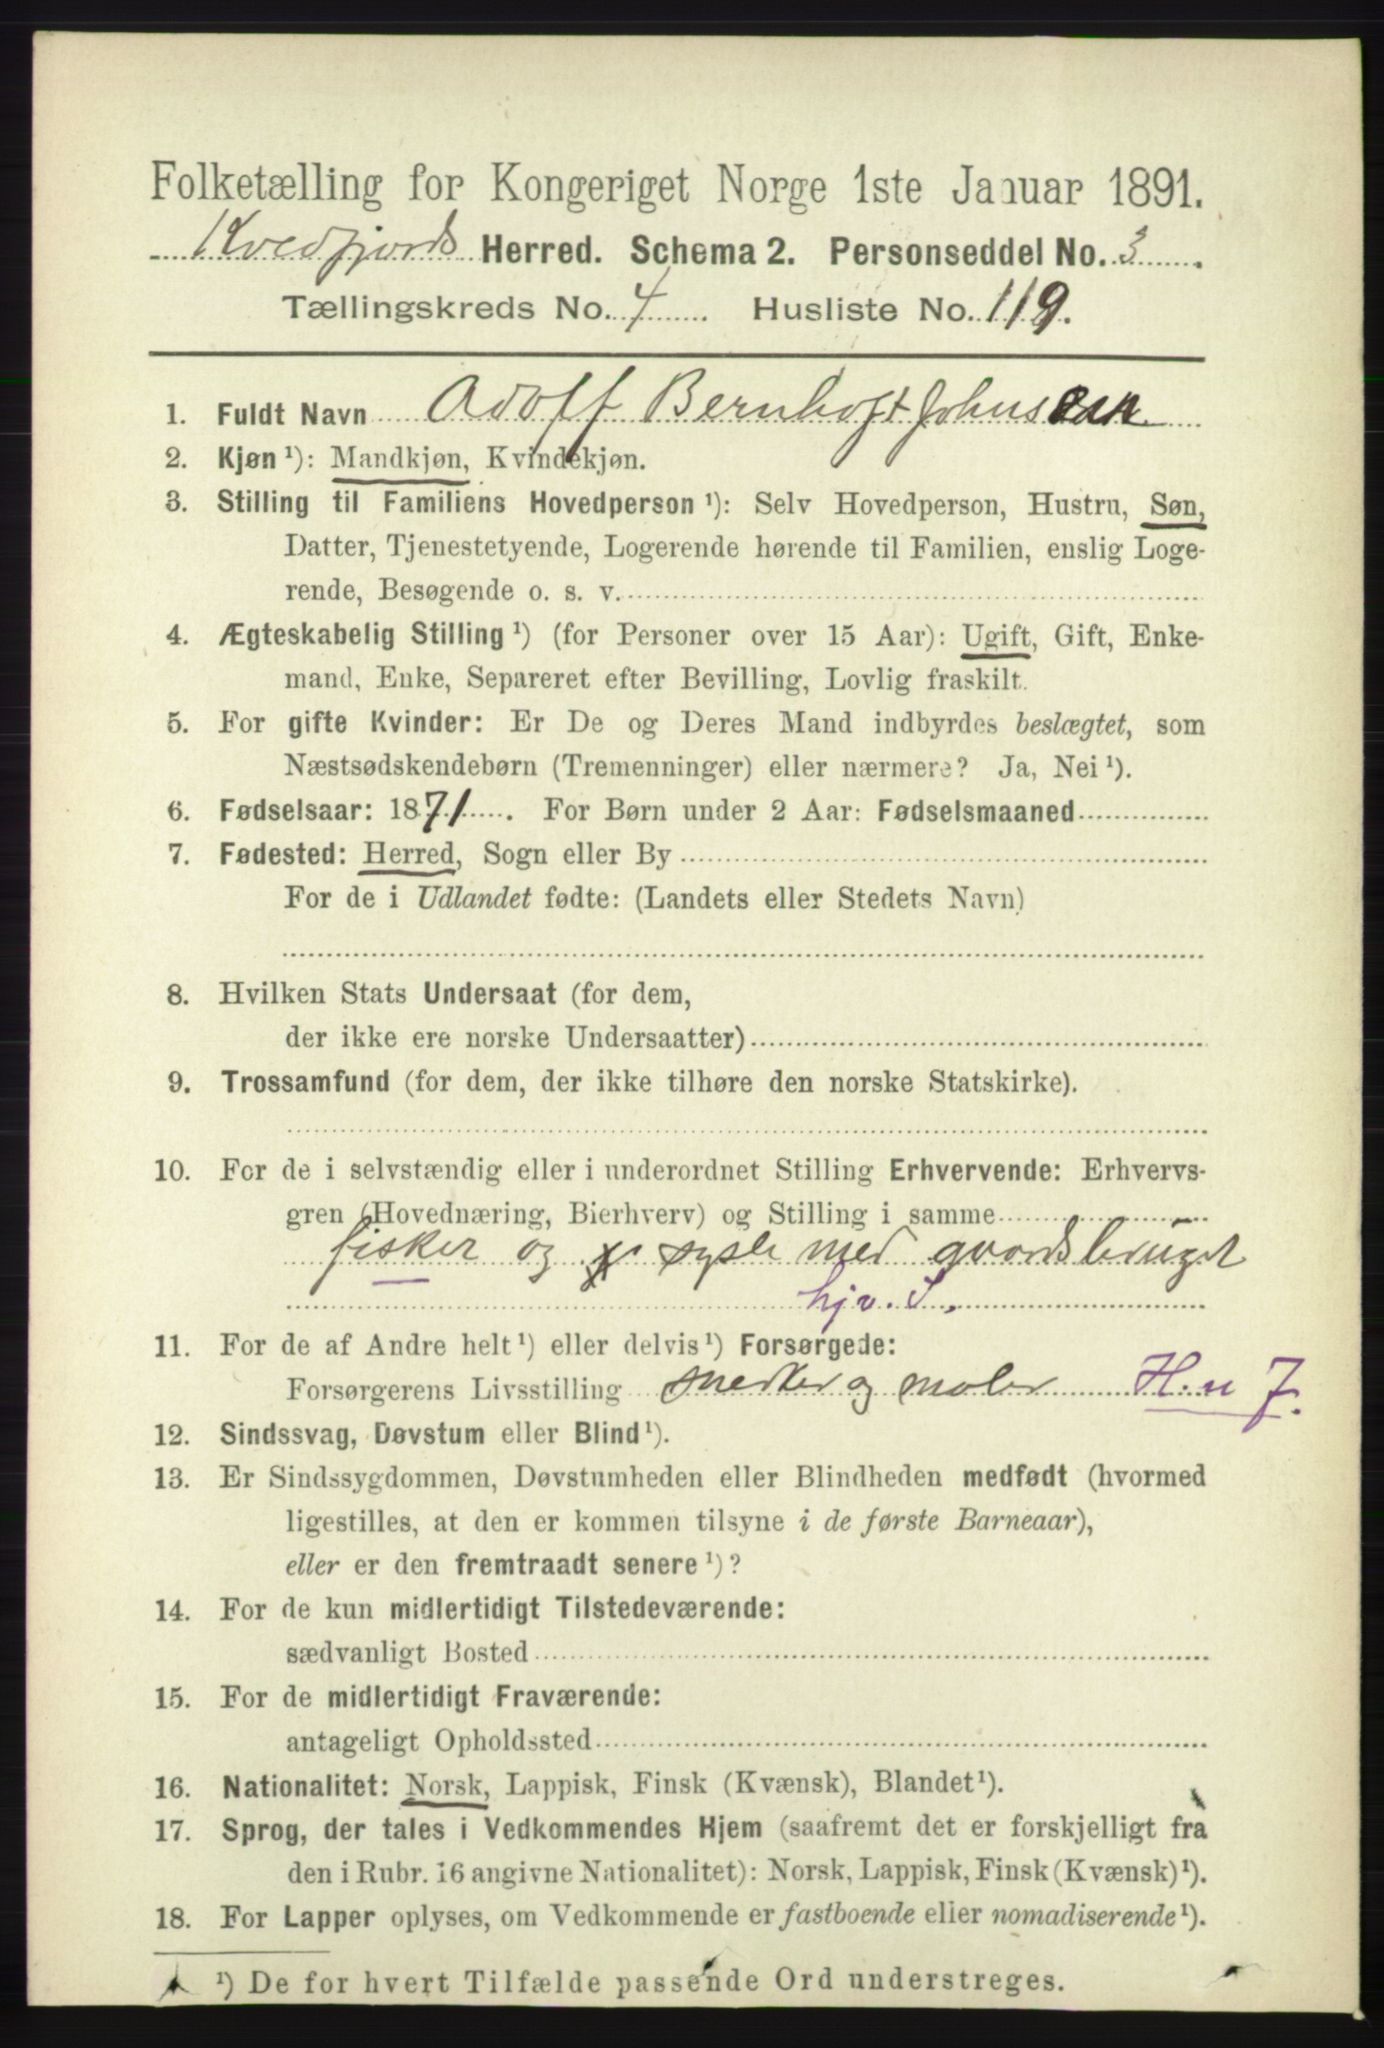 Folketælling for Kongeriget Norge 1ste Januar 1891.
Kvedfjords Herred. Schema 2. Personseddel No. 3.
Tællingskreds No. 4. Husliste No. 119.
1. Fuldt Navn Adolf Bernhoft Johnsen
2. Kjøn ¹): Mandkjøn, Kvindekjøn.
3. Stilling til Familiens Hovedperson ¹): Selv Hovedperson, Hustru, Søn,
Datter, Tjenestetyende, Logerende hørende til Familien, enslig Loge-
rende, Besøgende o. s. v.
4. Ægteskabelig Stilling ¹) (for Personer over 15 Aar): Ugift, Gift, Enke-
mand, Enke, Separeret efter Bevilling, Lovlig fraskilt.
5. For gifte Kvinder: Er De og Deres Mand indbyrdes beslægtet, som
Næstsødskendebørn (Tremenninger) eller nærmere? Ja, Nei ¹).
6. Fødselsaar: 1871. For Børn under 2 Aar: Fødselsmaaned
7. Fødested: Herred, Sogn eller By
For de i Udlandet fødte: (Landets eller Stedets Navn)
8. Hvilken Stats Undersaat (for dem,
der ikke ere norske Undersaatter)
9. Trossamfund (for dem, der ikke tilhøre den norske Statskirke).
10. For de i selvstændig eller i underordnet Stilling Erhvervende: Erhvervs-
gren (Hovednæring, Bierhverv) og Stilling i samme
fisker og sysle med gaardsbruget
hjv. S.
11. For de af Andre helt ¹) eller delvis ¹) Forsørgede:
Forsørgerens Livsstilling snedker og maler H. u 7.
12. Sindssvag, Døvstum eller Blind ¹).
13. Er Sindssygdommen, Døvstumheden eller Blindheden medfødt (hvormed
ligestilles, at den er kommen tilsyne i de første Barneaar),
eller er den fremtraadt senere ¹)?
14. For de kun midlertidigt Tilstedeværende:
sædvanligt Bosted
15. For de midlertidigt Fraværende:
antageligt Opholdssted
16. Nationalitet: Norsk, Lappisk, Finsk (Kvænsk), Blandet ¹).
17. Sprog, der tales i Vedkommendes Hjem (saafremt det er forskjelligt fra
den i Rubr. 16 angivne Nationalitet): Norsk, Lappisk, Finsk (Kvænsk) ¹).
18. For Lapper oplyses, om Vedkommende er fastboende eller nomadiserende ¹).
¹) De for hvert Tilfælde passende Ord understreges.